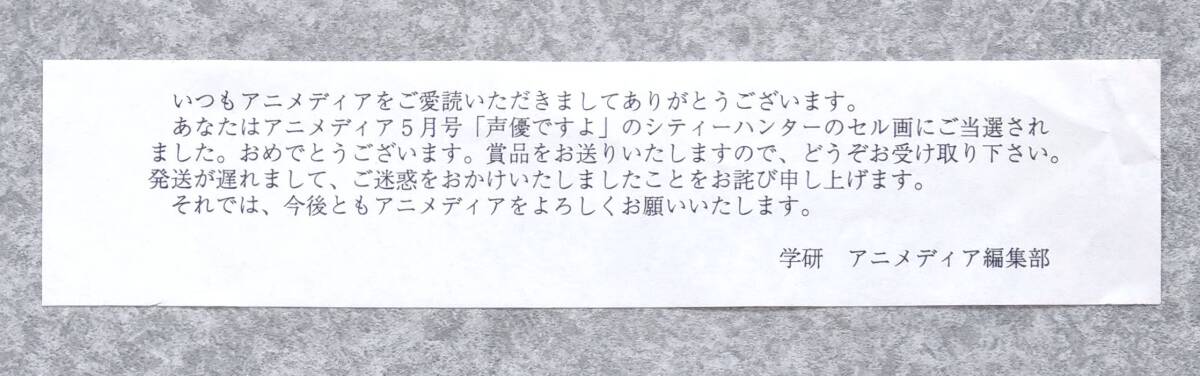 いつもアニメディアをご愛読いただきましてありがとうございます。
あなたはアニメディア５月号「声優ですよ」のシティーハンターのセル画にご当選され
ました。おめでとうございます。賞品をお送りいたしますので、どうぞお受け取り下さい。
発送が遅れまして、ご迷惑をおかけいたしましたことをお詫び申し上げます。
それでは、今後ともアニメディアをよろしくお願いいたします。
学研　アニメディア編集部